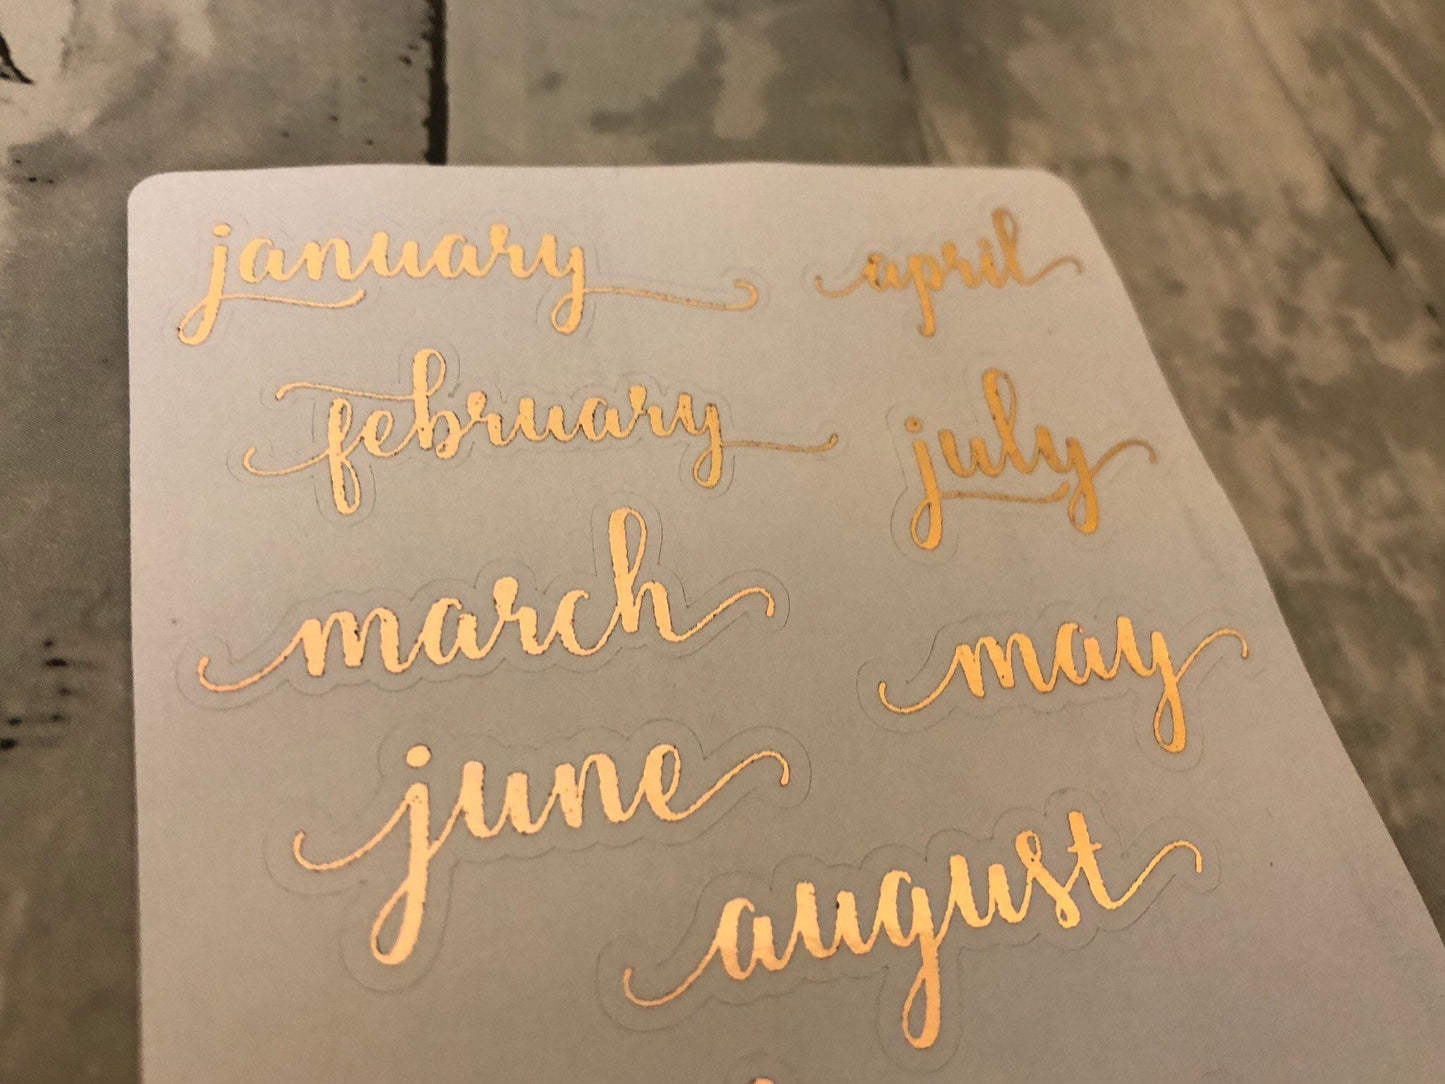 january
april
february
july
march
may
june
august